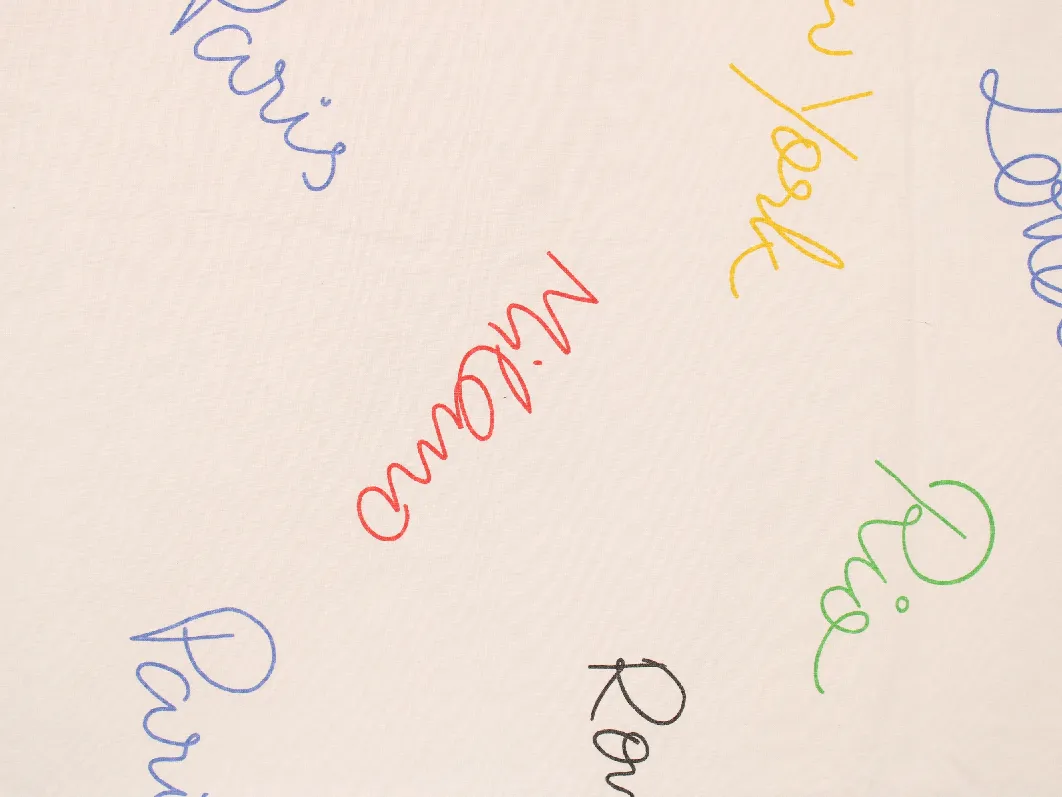 Paris
w York
Lon
Milano
Rio
Pari
Rom